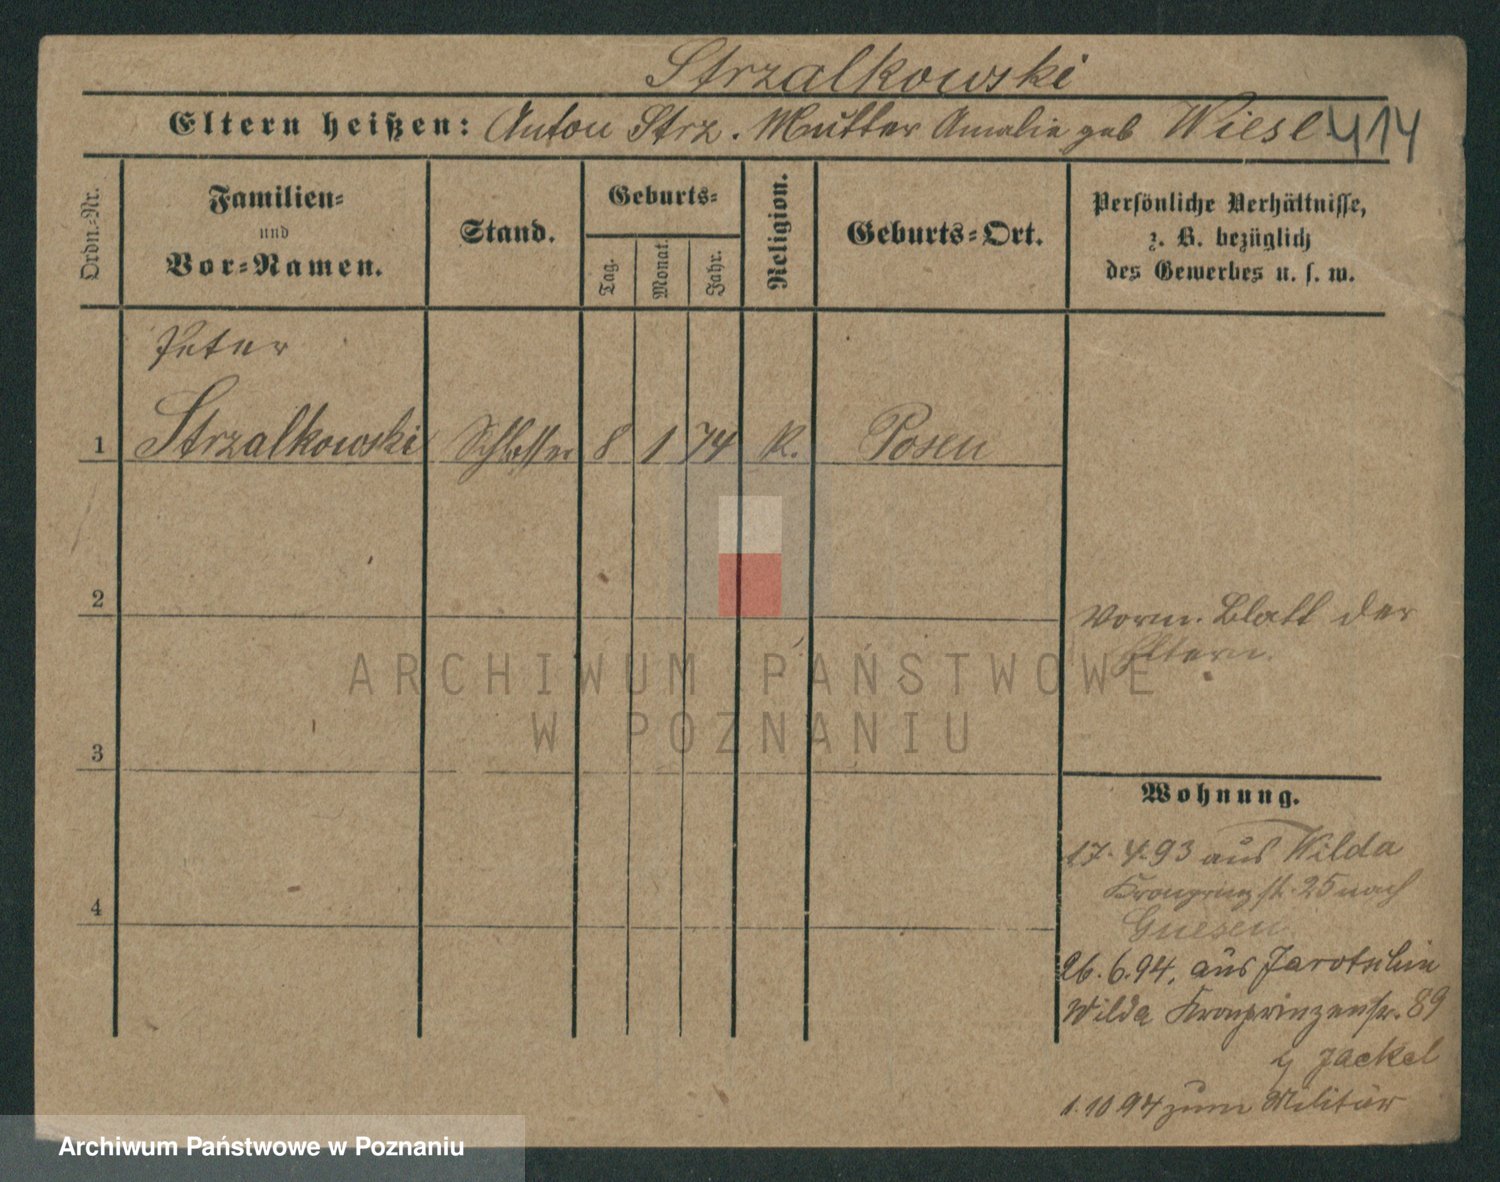 Strzalkowski
Eltern heißen: Anton Strz. Mutter Amalie geb Wiesl
414
Ordn.-Nr.
Familien-
und
Vor-Namen.
Stand.
Geburts-
Tag.
Monat.
Jahr.
Religion.
Geburts-Ort.
Persönliche Verhältnisse,
z. B. bezüglich
des Gewerbes u. s. w.
Peter
1 Strzalkowski Schlosser 8 1 74 K. Posen
2
Vorm. Blatt der
Eltern.
ARCHIWUM PAŃSTWOWE
W POZNANIU
3
Wohnung.
17. 4. 93 aus Wilda
Kronprinzstr. 25 nach
4
Gnesen
26. 6. 94. aus Jarotschin
Wilda Kronprinzenstr. 89
Jackel
1. 10 94 zum Militär
Archiwum Państwowe w Poznaniu